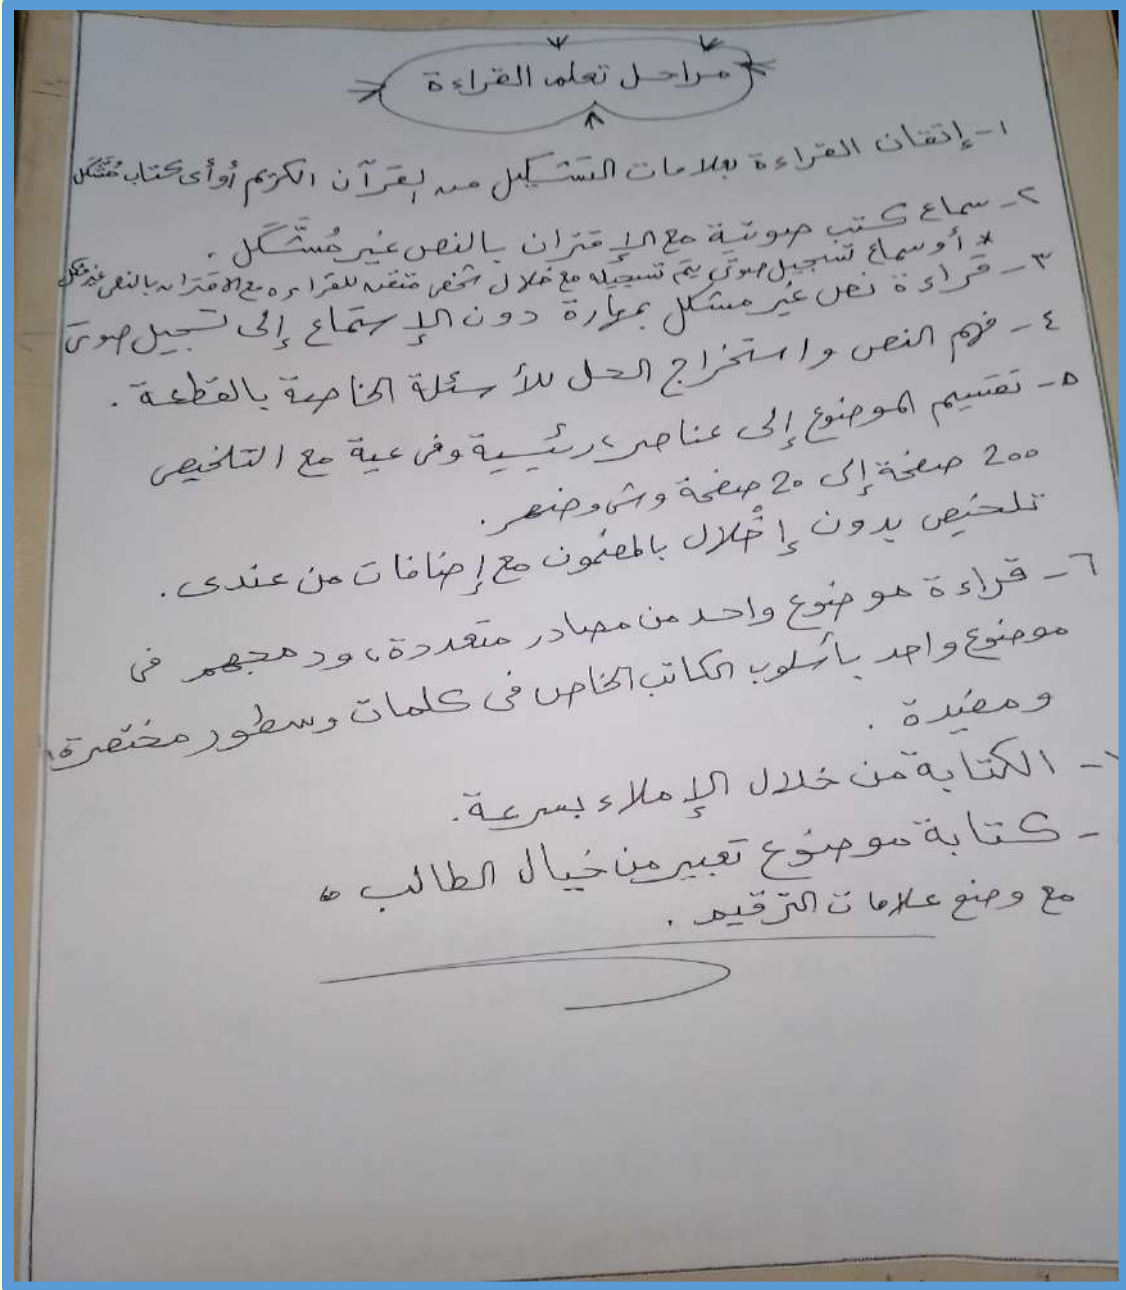 مراحل تعلم القراءة
١- إتقان القراءة بعلامات التشكيل من القرآن الكريم أو أى كتاب مُشَكل
٢- سماع كتب صوتية مع الإقتران بالنص غير مُشَّكَل.
* أو سماع تسجيل صوتى يتم تسجيله مع خلال شخص متقن للقراءه مع الاقتران بالنص غير مشكل
٣- قراءة نص غير مشكل بمهارة دون الإستماع إلى تسجيل صوتى
٤- فهم النص واستخراج الحل للأسئلة الخاصة بالقطعة.
٥- تقسيم الموضوع إلى عناصر رئيسية وفرعية مع التلخيص
200 صفحة إلى 20 صفحة
تلخيص بدون إخلال بالمضمون مع إضافات من عندى.
٦- قراءة موضوع واحد من مصادر متعددة، ودمجهم فى
موضوع واحد بأسلوب الكاتب الخاص فى كلمات وسطور مختصرة،
ومفيدة.
- الكتابة من خلال الإملاء بسرعة.
- كتابة موضوع تعبير من خيال الطالب،
مع وضع علامات الترقيم.